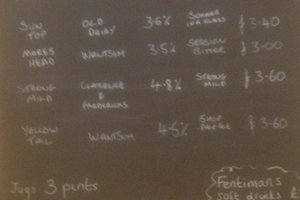 SUN TOP OLD DAIRY 3.6% SUMMER IN A GLASS £3-40
MORES HEAD WANTSUM 3.5% SESSION BITTER £3-00
STRONG MILD CLARENCE & FREDERICKS 4.8% STRONG MILD £3-60
YELLOW TAIL WANTSUM 4.5% PALE £3-60
Jugs 3 pints
Fentimans
soft drinks £